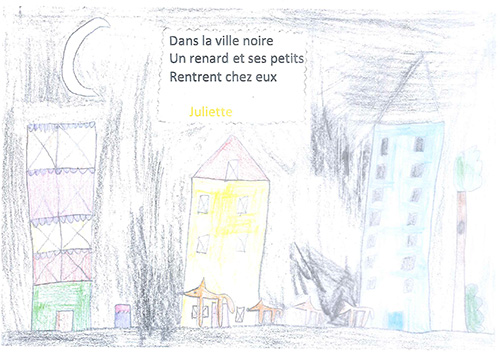 Dans la ville noire
Un renard et ses petits
Rentrent chez eux
Juliette